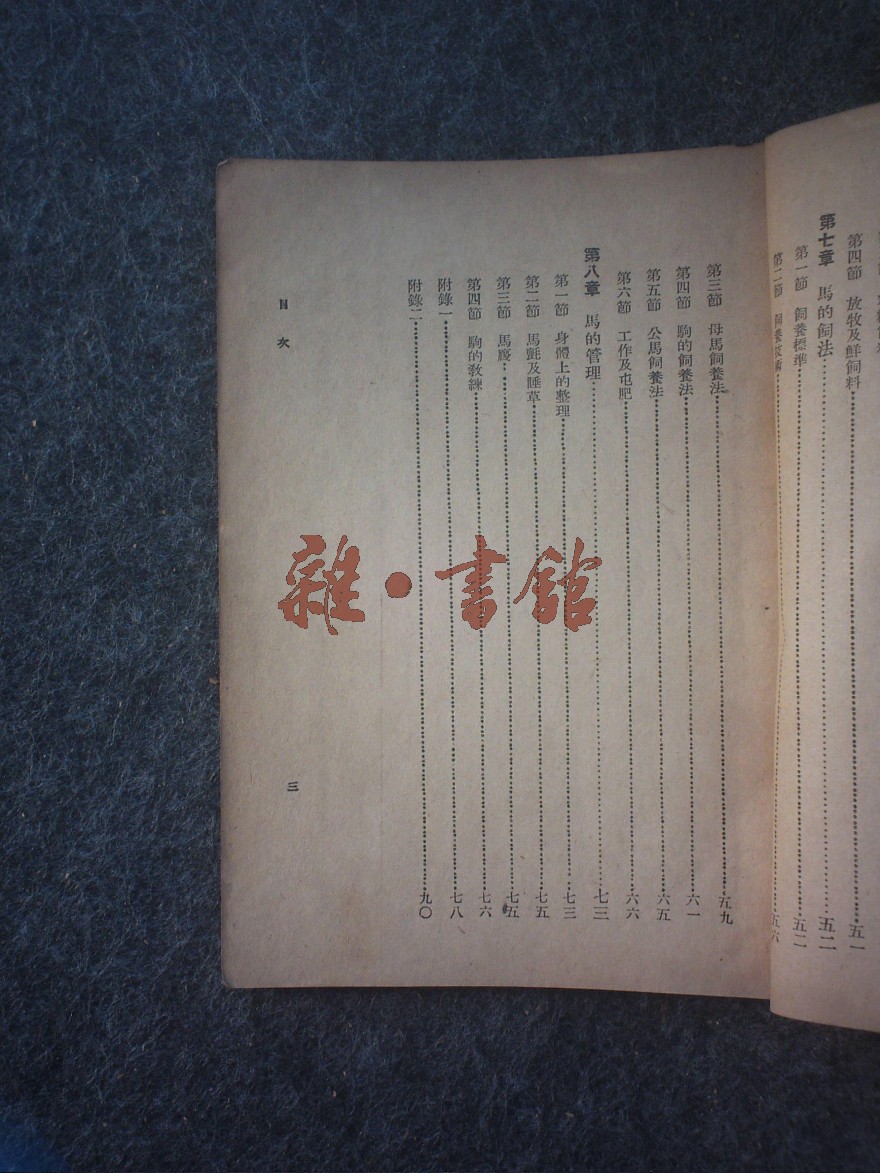 第四節　放牧及鮮飼料……五一
第七章　馬的飼法……五二
第一節　飼養標準……五二
第二節　飼養技術……五六
第三節　母馬飼養法……五九
第四節　駒的飼養法……六一
第五節　公馬飼養法……六五
第六節　工作及屯肥……六六
第八章　馬的管理……七三
第一節　身體上的整理……七三
第二節　馬氈及睡草……七五
第三節　馬廄……七五
第四節　駒的敎練……七六
附錄一……七八
附錄二……九〇
目次
三
雜·書館